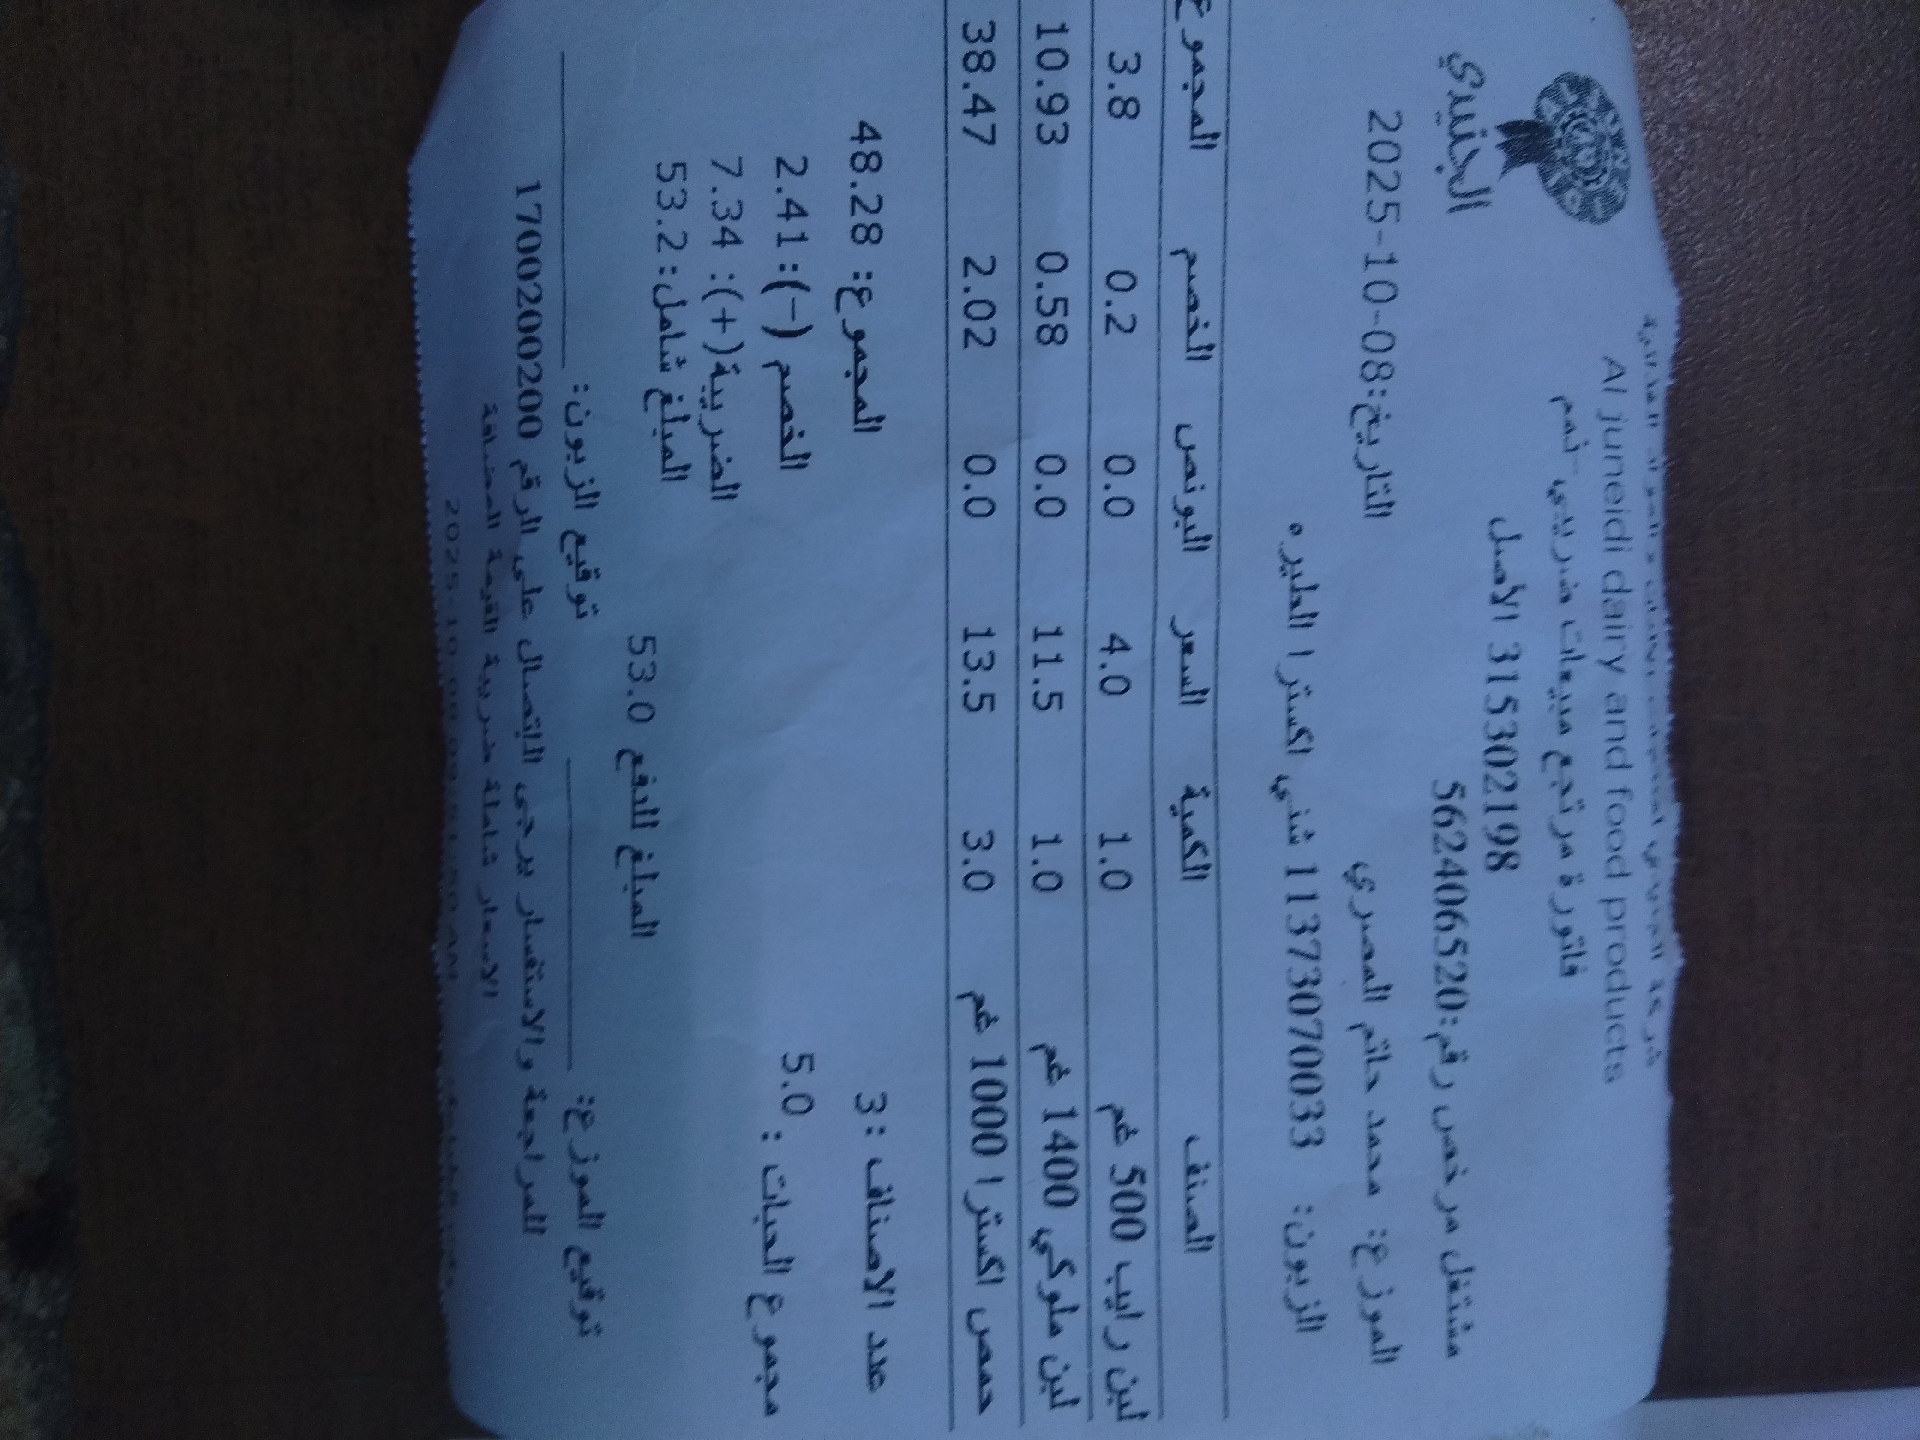 الجنيدي
شركة الجنيدي لمنتجات الالبان والمواد الغذائية
Al juneidi dairy and food products
فاتورة مرتجع مبيعات ضريبي-ثمم
315302198 الأصل
مشتغل مرخص رقم:562406520
التاريخ:2025-10-08
الموزع: محمد حاتم المصري
الزبون: 1137307033 شني اكسترا الطيره
الصنف الكمية السعر البونص الخصم المجموع
لبن رايب 500 غم 1.0 4.0 0.0 0.2 3.8
لبن ملوكي 1400 غم 1.0 11.5 0.0 0.58 10.93
حمص اكسترا 1000 غم 3.0 13.5 0.0 2.02 38.47
عدد الاصناف :3 المجموع: 48.28
مجموع الحبات : 5.0 الخصم (-): 2.41
الضريبة(+): 7.34
المبلغ شامل: 53.2
المبلغ للدفع 53.0
توقيع الموزع: توقيع الزبون:
للمراجعة والاستفسار يرجى الاتصال على الرقم 1700200200
الاسعار شاملة ضريبة القيمة المضافة